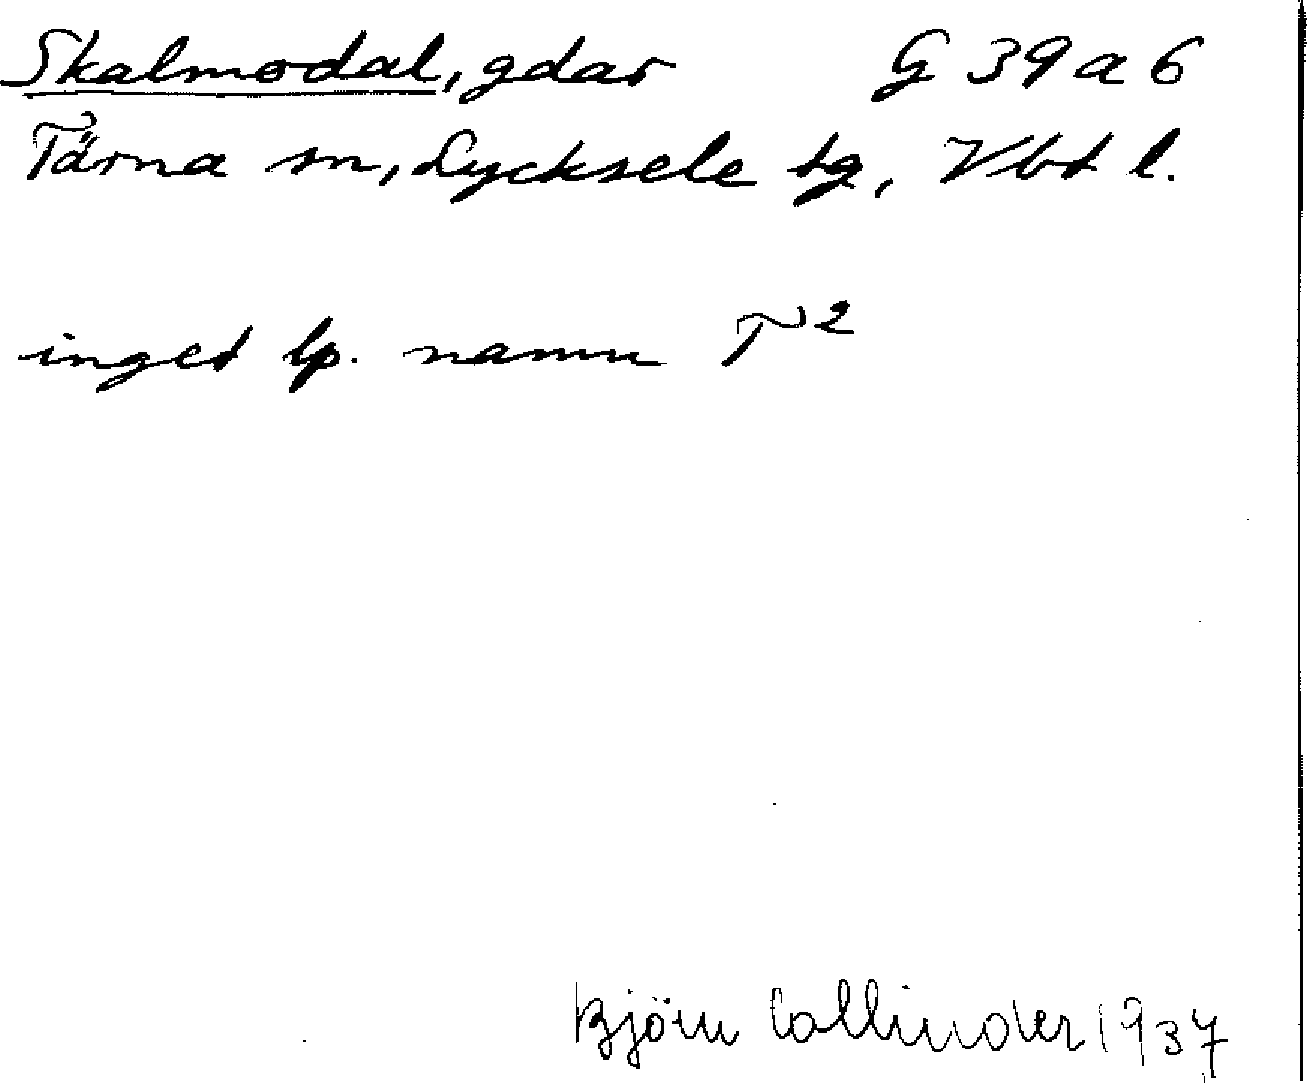 Skalmodal, gdar G 39 a 6
Tärna sn, Lycksele tg, Vbt l.
inget lp. namn T²
Björn Collinder 1937